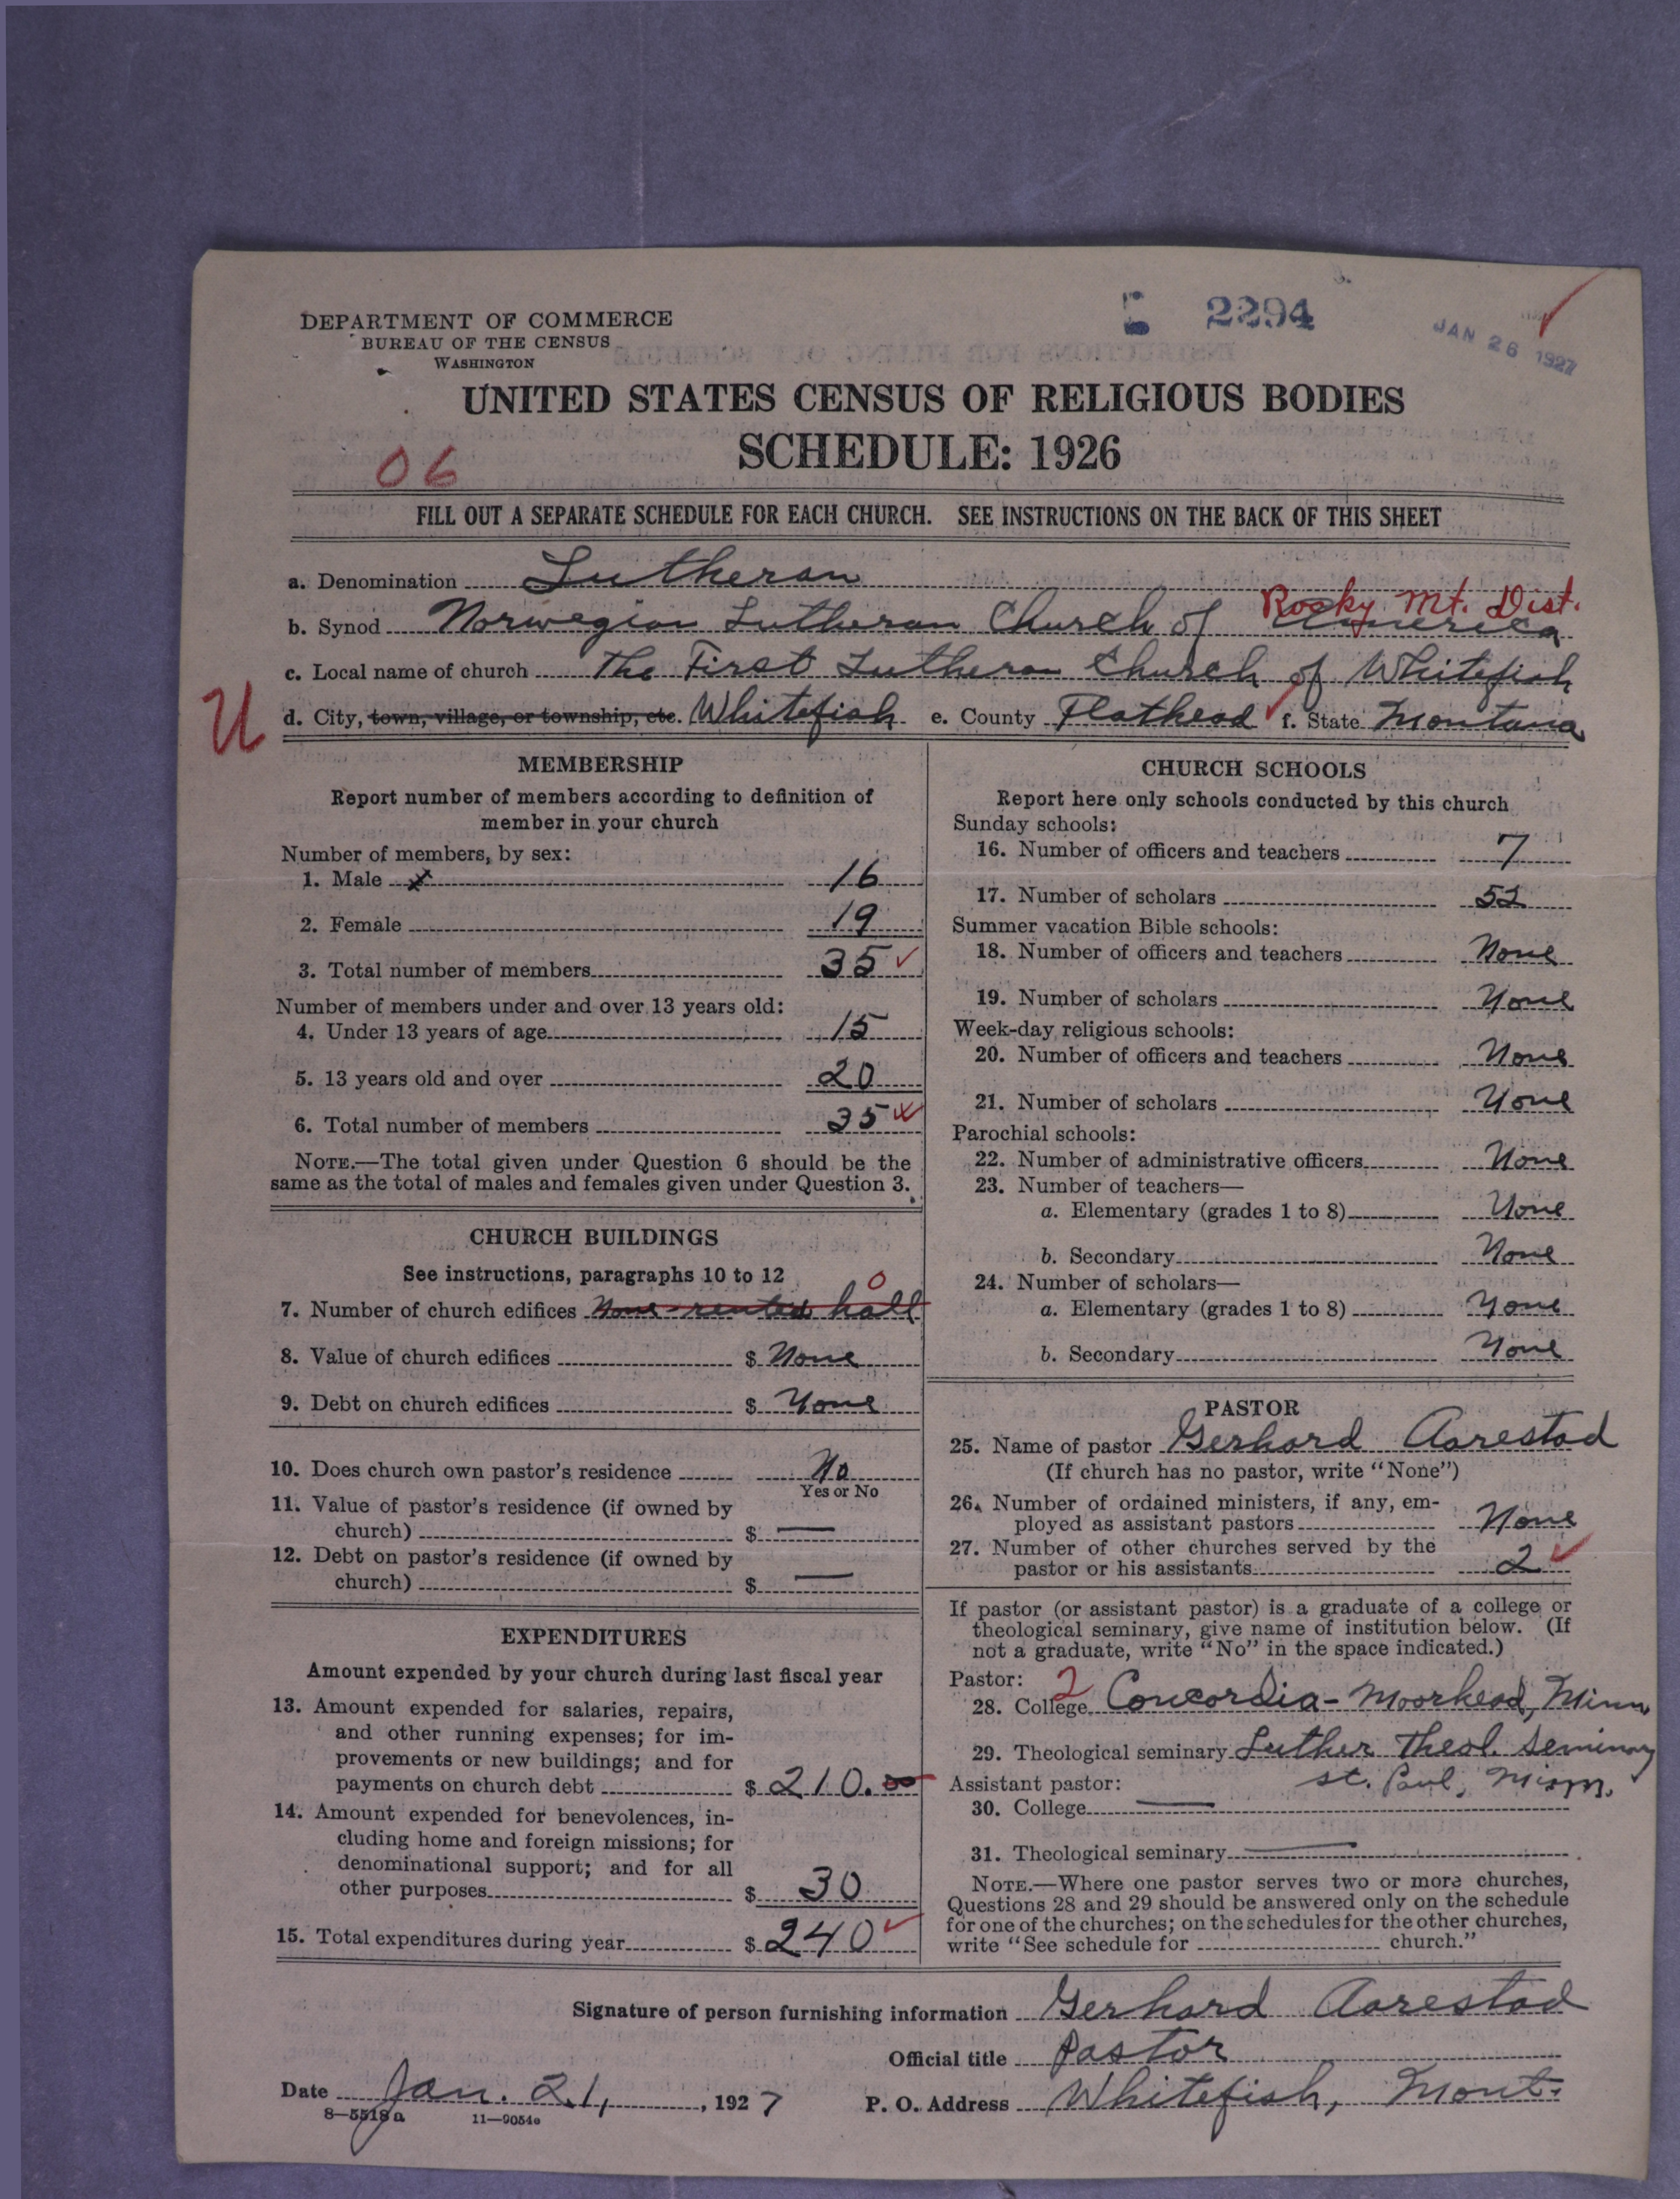 DEPARTMENT OF COMMERCE
BUREAU OF THE CENSUS
WASHINGTON
2294
JAN 26 1927
UNITED STATES CENSUS OF RELIGIOUS BODIES
SCHEDULE: 1926
06
FILL OUT A SEPARATE SCHEDULE FOR EACH CHURCH. SEE INSTRUCTIONS ON THE BACK OF THIS SHEET
a. Denomination Lutheran
Rocky Mt. Dist.
b. Synod Norwegian Lutheran Church of America
c. Local name of church The First Lutheran Church of Whitefish
U
d. City, town, village, or township, etc. Whitefish e. County Flathead f. State Montana
MEMBERSHIP
Report number of members according to definition of
member in your church
Number of members, by sex:
1. Male 16
2. Female 19
3. Total number of members 35
Number of members under and over 13 years old:
4. Under 13 years of age 15
5. 13 years old and over 20
6. Total number of members 35
NOTE.—The total given under Question 6 should be the
same as the total of males and females given under Question 3.
CHURCH BUILDINGS
See instructions, paragraphs 10 to 12
0
7. Number of church edifices None - rented hall
8. Value of church edifices $ None
9. Debt on church edifices $ None
10. Does church own pastor's residence No
Yes or No
11. Value of pastor's residence (if owned by
church) $ —
12. Debt on pastor's residence (if owned by
church) $ —
EXPENDITURES
Amount expended by your church during last fiscal year
13. Amount expended for salaries, repairs,
and other running expenses; for im-
provements or new buildings; and for
payments on church debt $ 210.00
14. Amount expended for benevolences, in-
cluding home and foreign missions; for
denominational support; and for all
other purposes $ 30
15. Total expenditures during year $ 240
CHURCH SCHOOLS
Report here only schools conducted by this church
Sunday schools:
16. Number of officers and teachers 7
17. Number of scholars 52
Summer vacation Bible schools:
18. Number of officers and teachers None
19. Number of scholars None
Week-day religious schools:
20. Number of officers and teachers None
21. Number of scholars None
Parochial schools:
22. Number of administrative officers None
23. Number of teachers—
a. Elementary (grades 1 to 8) None
b. Secondary None
24. Number of scholars—
a. Elementary (grades 1 to 8) None
b. Secondary None
PASTOR
25. Name of pastor Gerhard Aarestad
(If church has no pastor, write "None")
26. Number of ordained ministers, if any, em-
ployed as assistant pastors None
27. Number of other churches served by the
pastor or his assistants 2
If pastor (or assistant pastor) is a graduate of a college or
theological seminary, give name of institution below. (If
not a graduate, write "No" in the space indicated.)
Pastor: 2
28. College Concordia - Moorhead, Minn
29. Theological seminary Luther Theol. Seminary
Assistant pastor: St. Paul, Minn.
30. College —
31. Theological seminary —
NOTE.—Where one pastor serves two or more churches,
Questions 28 and 29 should be answered only on the schedule
for one of the churches; on the schedules for the other churches,
write "See schedule for church."
Signature of person furnishing information Gerhard Aarestad
Official title Pastor
Date Jan. 21, 1927 P. O. Address Whitefish, Mont.
8—5518a 11—9054e